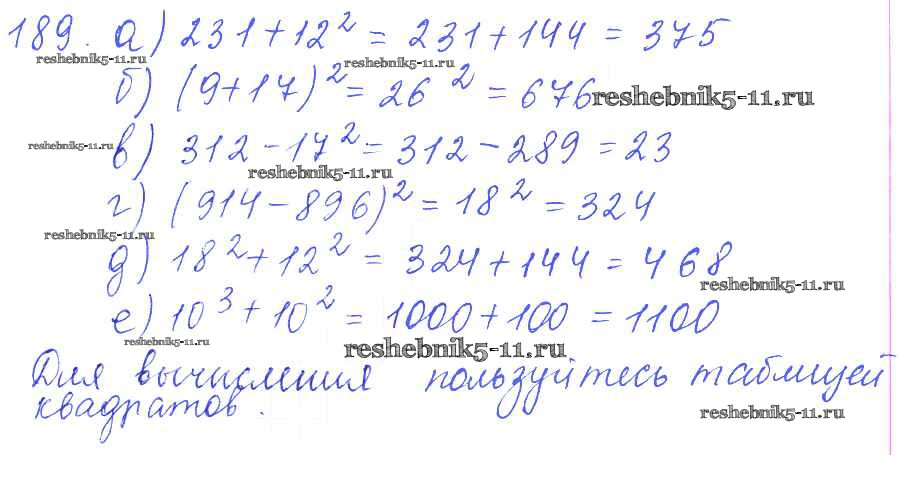 189. а) 231 + 12² = 231 + 144 = 375
reshebnik5-11.ru reshebnik5-11.ru
б) (9+17)² = 26² = 676 reshebnik5-11.ru
reshebnik5-11.ru в) 312 - 17² = 312 - 289 = 23
reshebnik5-11.ru
г) (914 - 896)² = 18² = 324
reshebnik5-11.ru
д) 18² + 12² = 324 + 144 = 468
reshebnik5-11.ru
е) 10³ + 10² = 1000 + 100 = 1100
reshebnik5-11.ru reshebnik5-11.ru
Для вычисления пользуйтесь таблицей
квадратов.
reshebnik5-11.ru